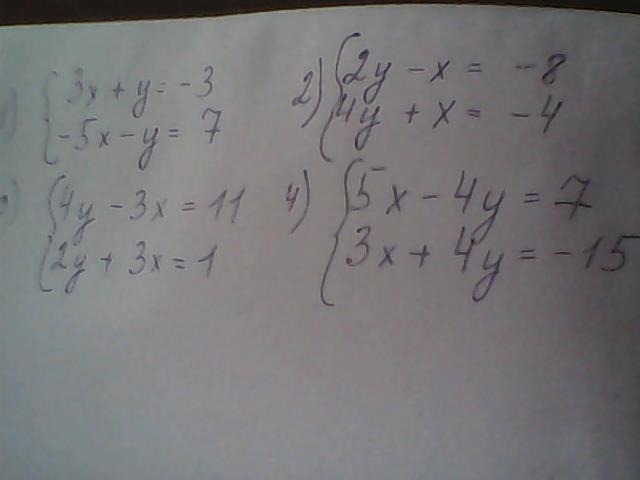 1) 3x + y = -3
-5x - y = 7
2) 2y - x = -8
4y + x = -4
3) 4y - 3x = 11
2y + 3x = 1
4) 5x - 4y = 7
3x + 4y = -15